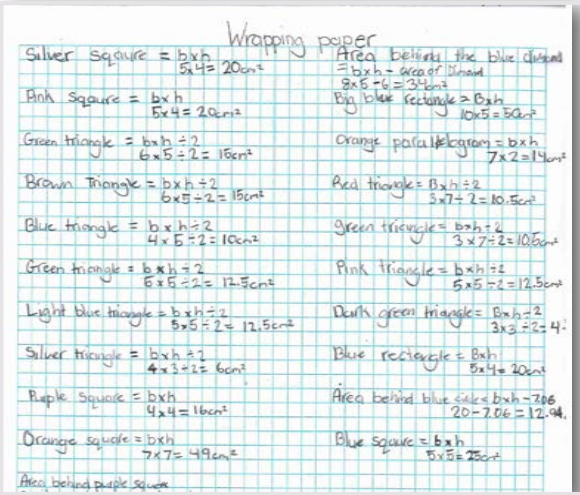 Wrapping paper
Silver sqaure = bxh
5x4= 20cm²
Pink Sqaure = bxh
5x4= 20cm²
Green triangle = bxh÷2
6x5÷2= 15cm²
Brown Triangle = bxh÷2
6x5÷2= 15cm²
Blue triangle = bxh÷2
4x5÷2= 10cm²
Green triangle = bxh÷2
5x5÷2= 12.5cm²
Light blue triangle = bxh÷2
5x5÷2= 12.5cm²
Silver triangle = bxh÷2
4x3÷2= 6cm²
Purple Square = bxh
4x4= 16cm²
Orange square = bxh
7x7= 49cm²
Area behind purple square
Area behind the blue
= bxh - area of
8x5-6=34cm²
Big blue rectangle = Bxh
10x5=50cm²
Orange parallelogram = bxh
7x2=14cm²
Red triangle = Bxh÷2
3x7÷2= 10.5cm²
green triangle = bxh÷2
3x7÷2=10.5cm²
Pink triangle = bxh÷2
5x5÷2=12.5cm²
Dark green triangle = Bxh÷2
3x3÷2=4.
Blue rectangle = Bxh
5x4= 20cm²
Area behind blue circle = bxh-7.06
20-7.06=12.94
Blue square = bxh
5x5= 25cm²